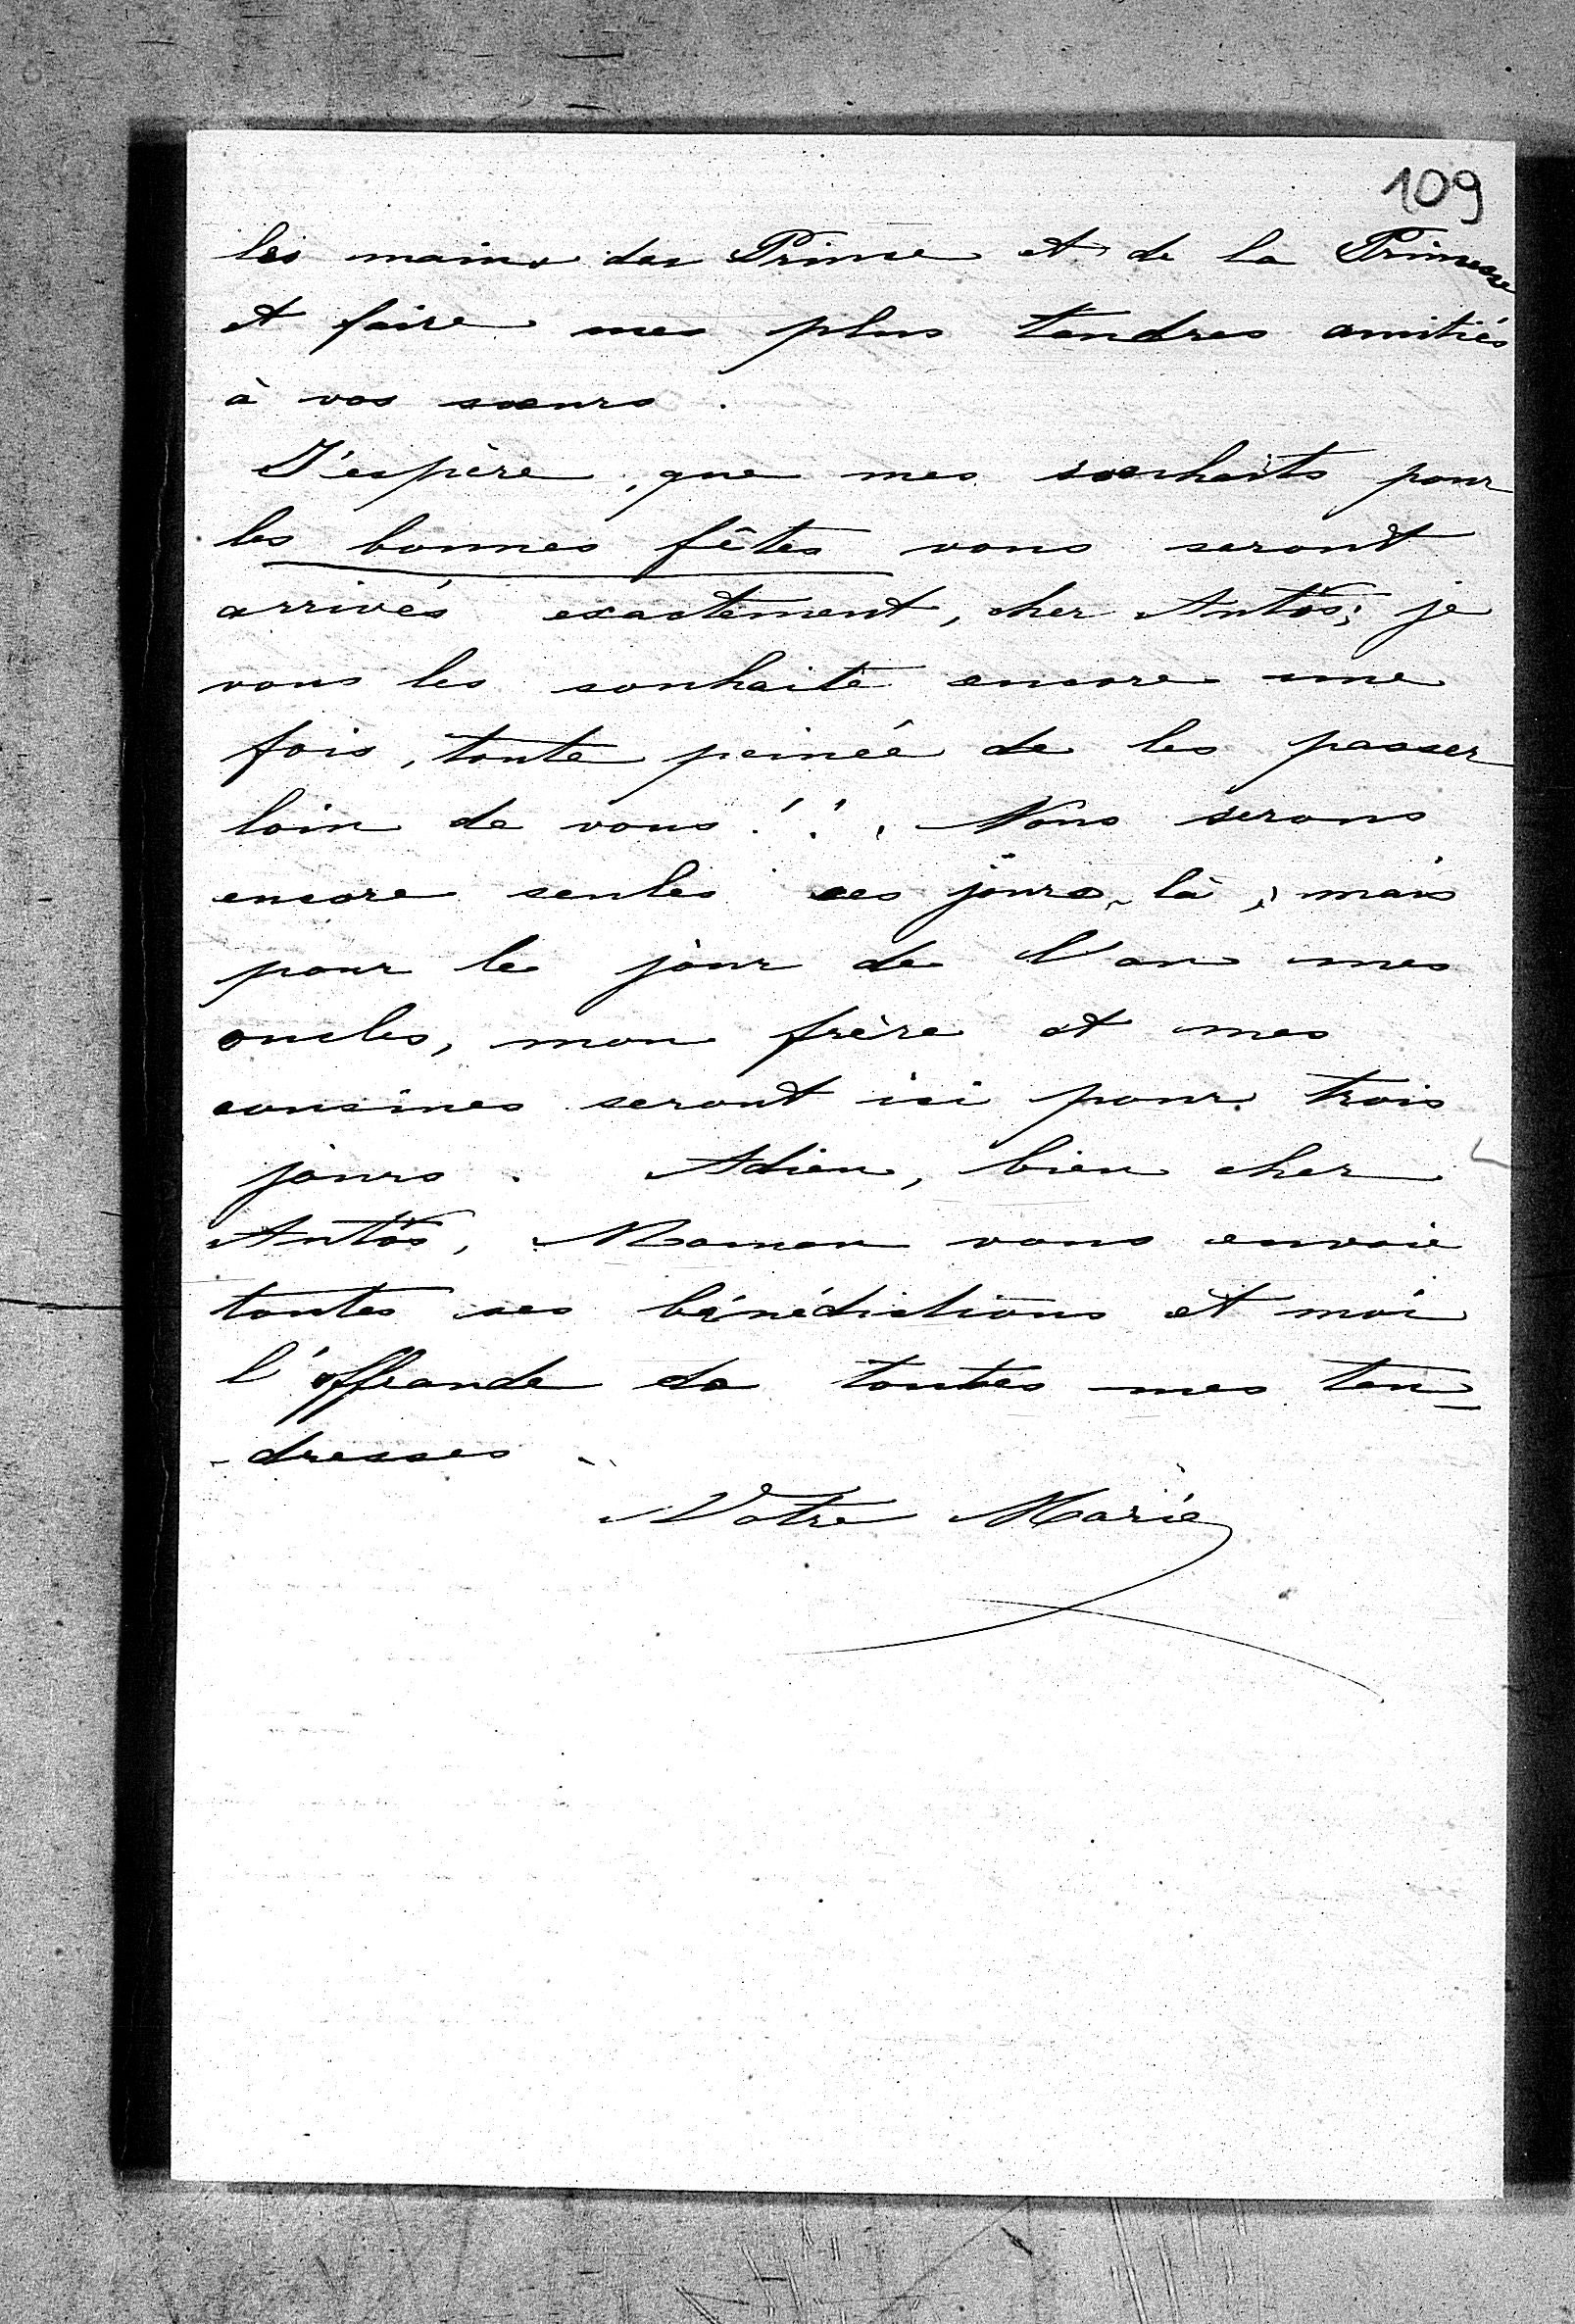 109
les mains du Prince et de la Princesse
et faire mes plus tendres amitiés
à vos soeurs.
J'espère, que mes souhaits pour
les bonnes fêtes vous seront
arrivés exactement, cher Antoś; je
vous les souhaite encore une
fois, toute peinée de les passer
loin de vous!!. Nous serons
encore seules ces jours-là, mais
pour le jour de l'an mes
oncles, mon frère et mes
cousines seront ici pour trois
jours. Adieu, bien cher
Antoś, Maman vous envoie
toutes ses bénédictions et moi
l'offrande de toutes mes ten-
-dresses.
Votre Marie